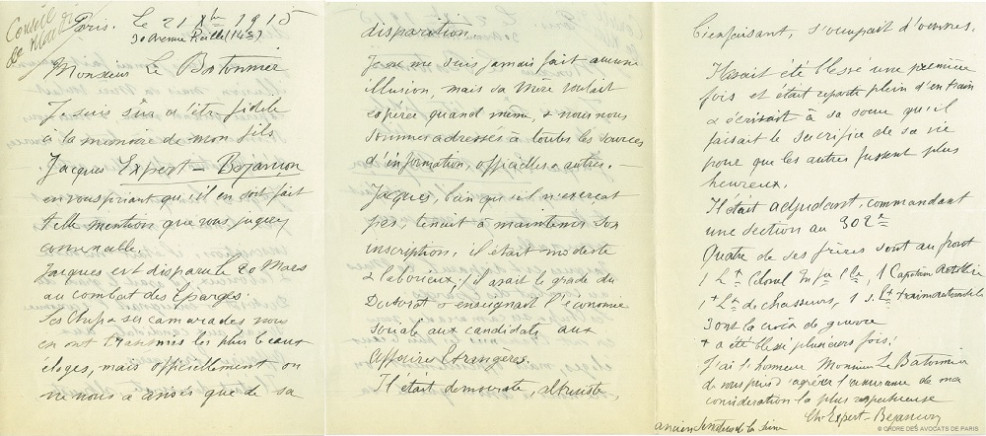 Conseil
Paris. Le 21 Xbre 1915
30 Avenue Reille (14e)
Monsieur Le Batonnier
Je suis sûr d'être fidèle
à la mémoire de mon fils
Jacques Expert-Bezançon
en vous priant qu'il en soit fait
telle mention que vous jugerez
convenable.
Jacques est disparu le 20 Mars
au combat des Eparges.
Ses chefs & ses camarades nous
en ont transmis les plus beaux
éloges, mais officiellement on
ne nous a avisés que de sa
disparition.
Je ne me suis jamais fait aucune
illusion, mais sa mère voulait
espérer quand même, & nous nous
sommes adressés à toutes les sources
d'information, officielles & autres. —
Jacques, bien qu'il n'exerçat
pas, tenait à maintenir son
inscription, il était modeste
& laborieux; il avait le grade du
Doctorat & enseignait l'économie
sociale aux candidats aux
Affaires Etrangères.
Il était democrate, altruiste,
bienfaisant, s'occupait d'œuvres.
Il avait été blessé une première
fois et était reparti plein d'entrain
& écrivait à sa sœur qu'il
faisait le sacrifice de sa vie
pour que les autres fussent plus
heureux.
Il était adjudant, commandant
une section au 302e
Quatre de ses frères sont au front
1 Lt Colonel 1 Capitaine Artillerie
1 Lt de chasseurs, 1 s. Lt
3 ont la croix de guerre
+ a été blessé plusieurs fois!
J'ai l'honneur Monsieur Le Batonnier
de vous prier d'agréer l'assurance de ma
considération la plus respectueuse
Ch Expert-Bezançon
ancien Sénateur de la Seine
© ORDRE DES AVOCATS DE PARIS